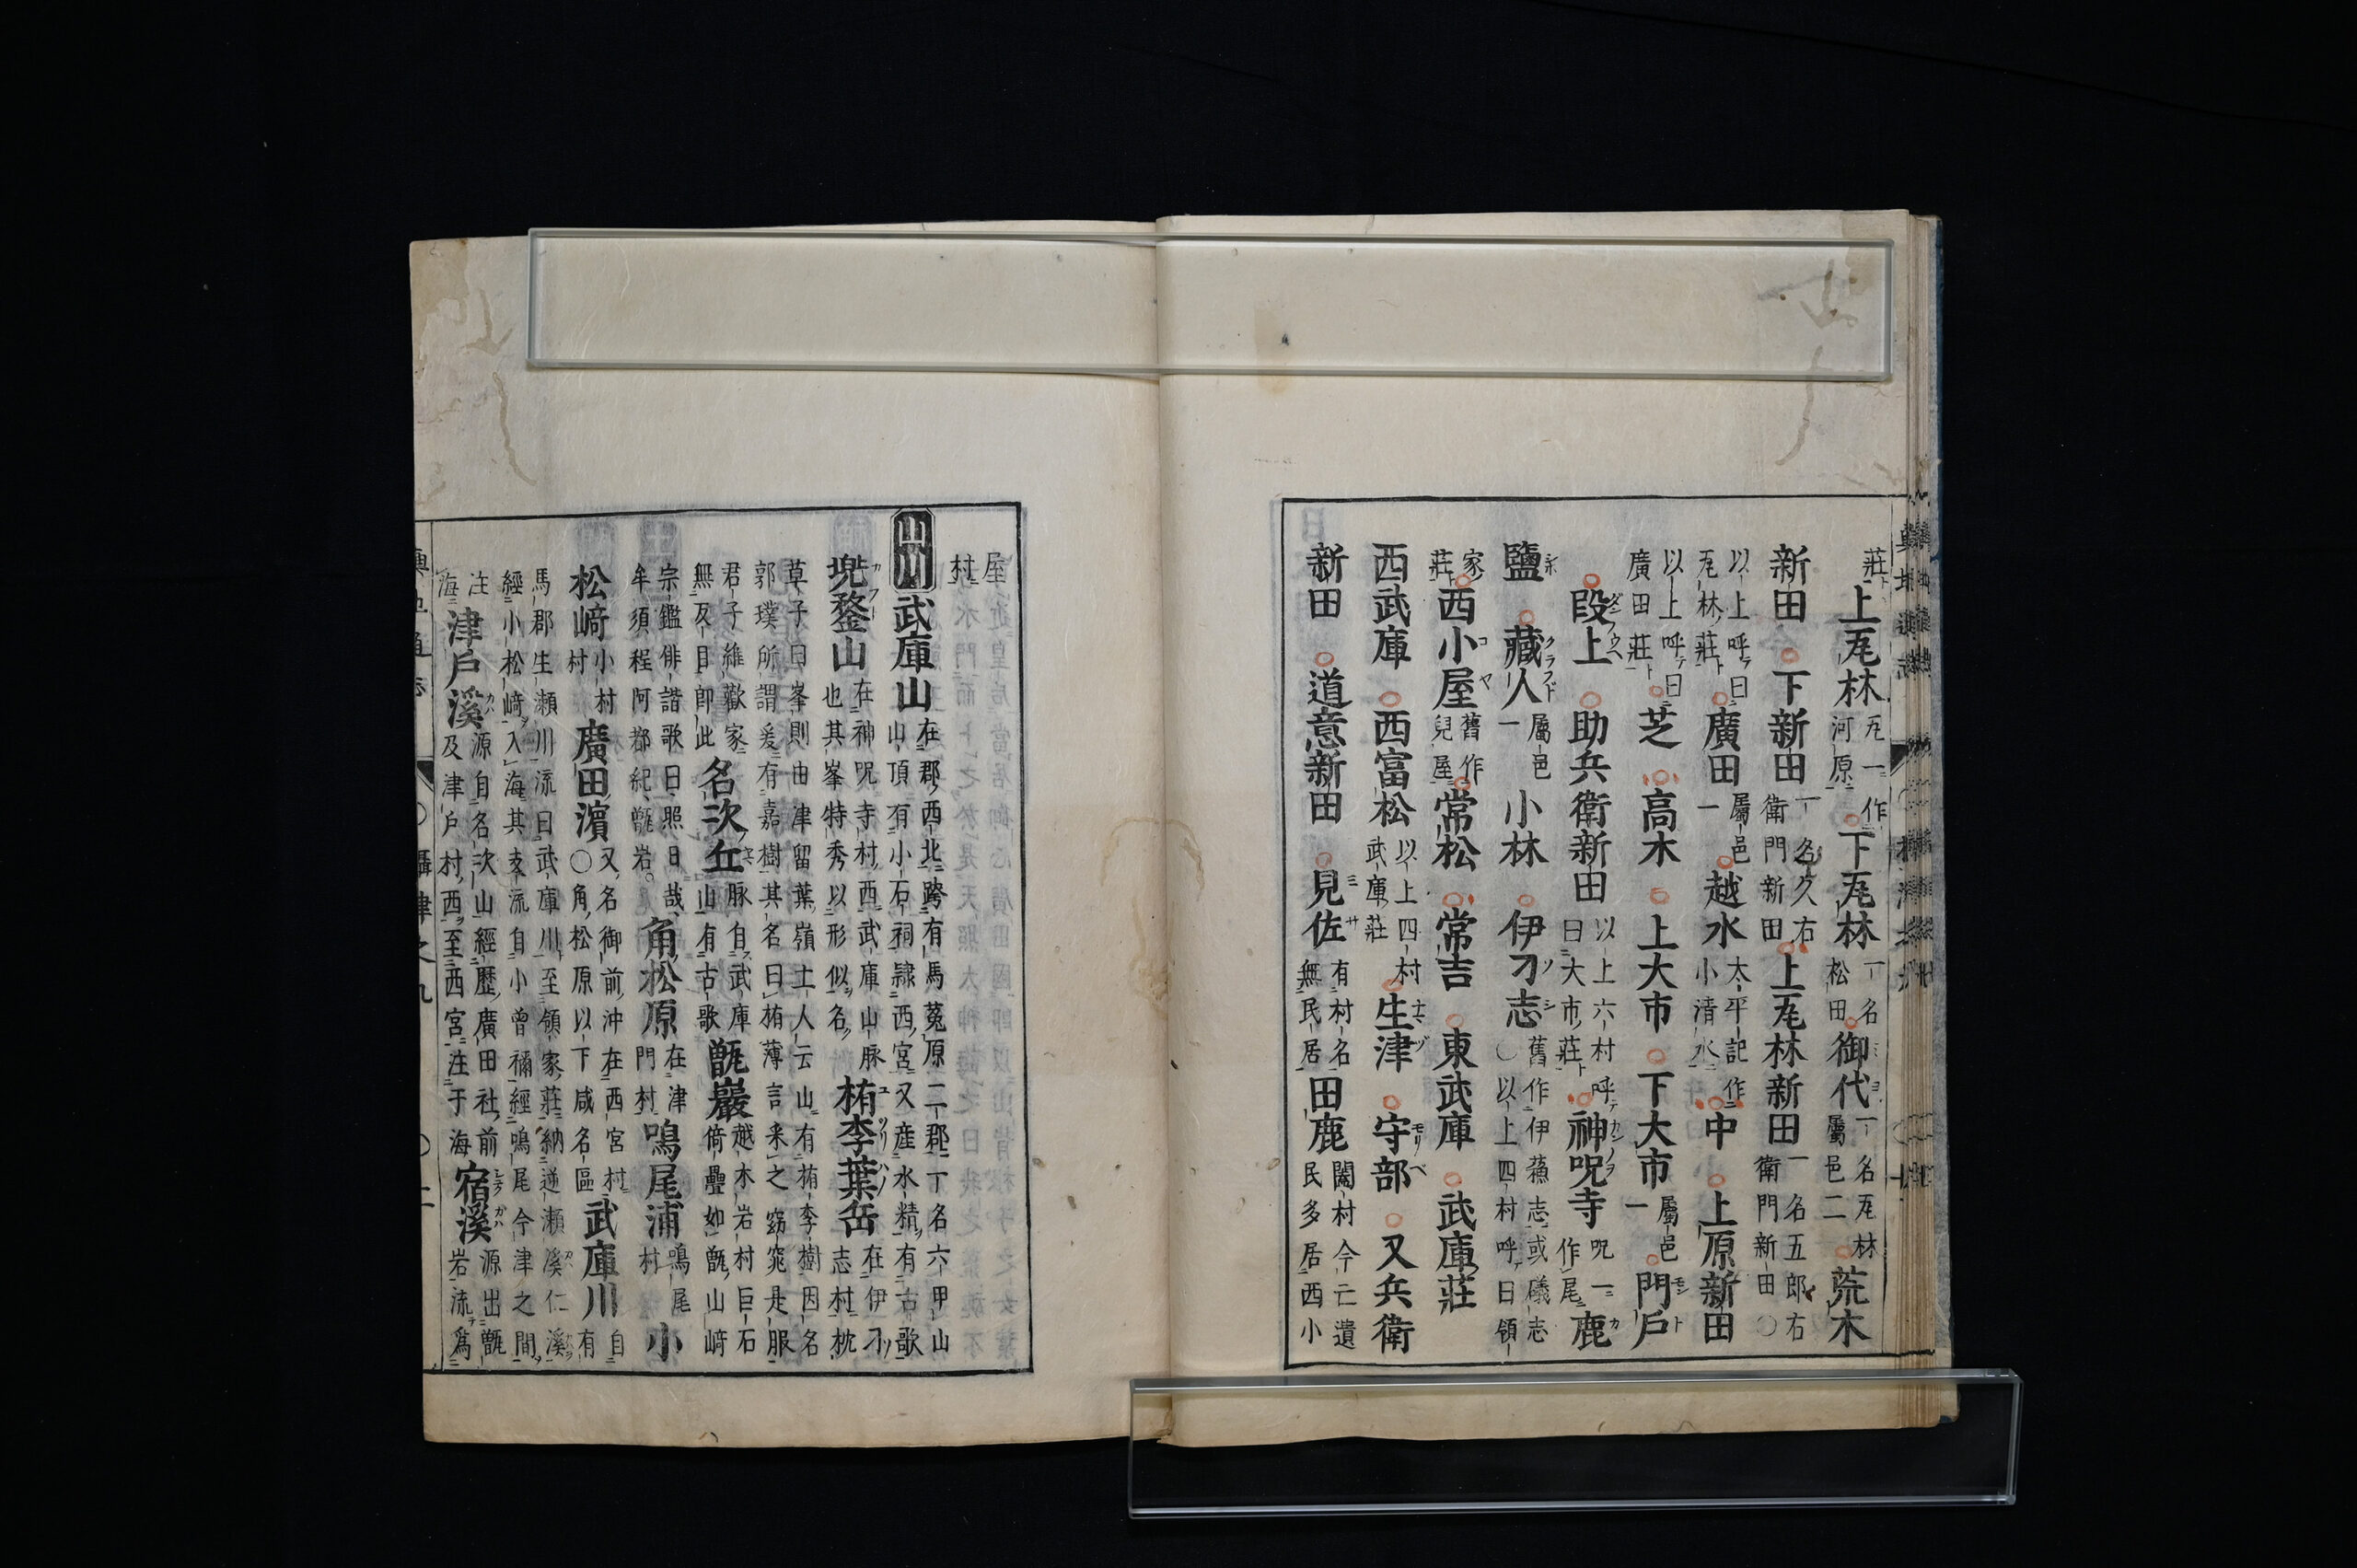 莊上瓦林瓦一作河原下瓦林一名松田御代一名瓦林屬邑二荒木
新田下新田一名久右衛門新田上瓦林新田一名五郎右衛門新田○
以上呼曰瓦林莊廣田屬邑一越水太平記作小清水中上原新田
以上呼曰廣田莊芝高木上大市下大市屬邑一門戸
段上助兵衛新田以上六村呼曰大市莊神呪寺呪一作尾鹿
鹽藏人屬邑一小林伊孑志舊作伊蘓志或礒志○以上四村呼曰領
家莊西小屋舊作兒屋常松常吉東武庫武庫莊
西武庫西富松以上四村武庫莊生津守部又兵衛
新田道意新田見佐有村名無民居田鹿闕村今亡遺民多居西小
屋村
山川武庫山在郡西北跨有馬菟原二郡一名六甲山山頂有小石祠隷西宮又產水精有古歌
兜鍪山在神呪寺村西武庫山脉也其峯特秀以形似名栯李葉岳在伊孑志村枕
草子曰峯則由津留葉嶺土人云山有栯李樹因名郭璞所謂爰有嘉樹其名曰栯薄言采之窈窕是服
君子維歡家無反目即此名次丘脉自武庫山有古歌甑巖越木岩村巨石倚疊如甑山﨑
宗鑑俳諧歌曰照日哉牟須程阿都紀甑岩。角松原在津門村鳴尾浦鳴尾村小
松﨑廣田濵又名御前沖在西宮村○角松原以下咸名區武庫川自有
馬郡生瀬川流曰武庫川至領家莊納逆瀬溪仁溪經小松﨑入海其支流自小曾禰經鳴尾今津之間
注海津戸溪源自名次山經歴廣田社前及津戸村西至西宮注于海宿溪源出甑岩流爲